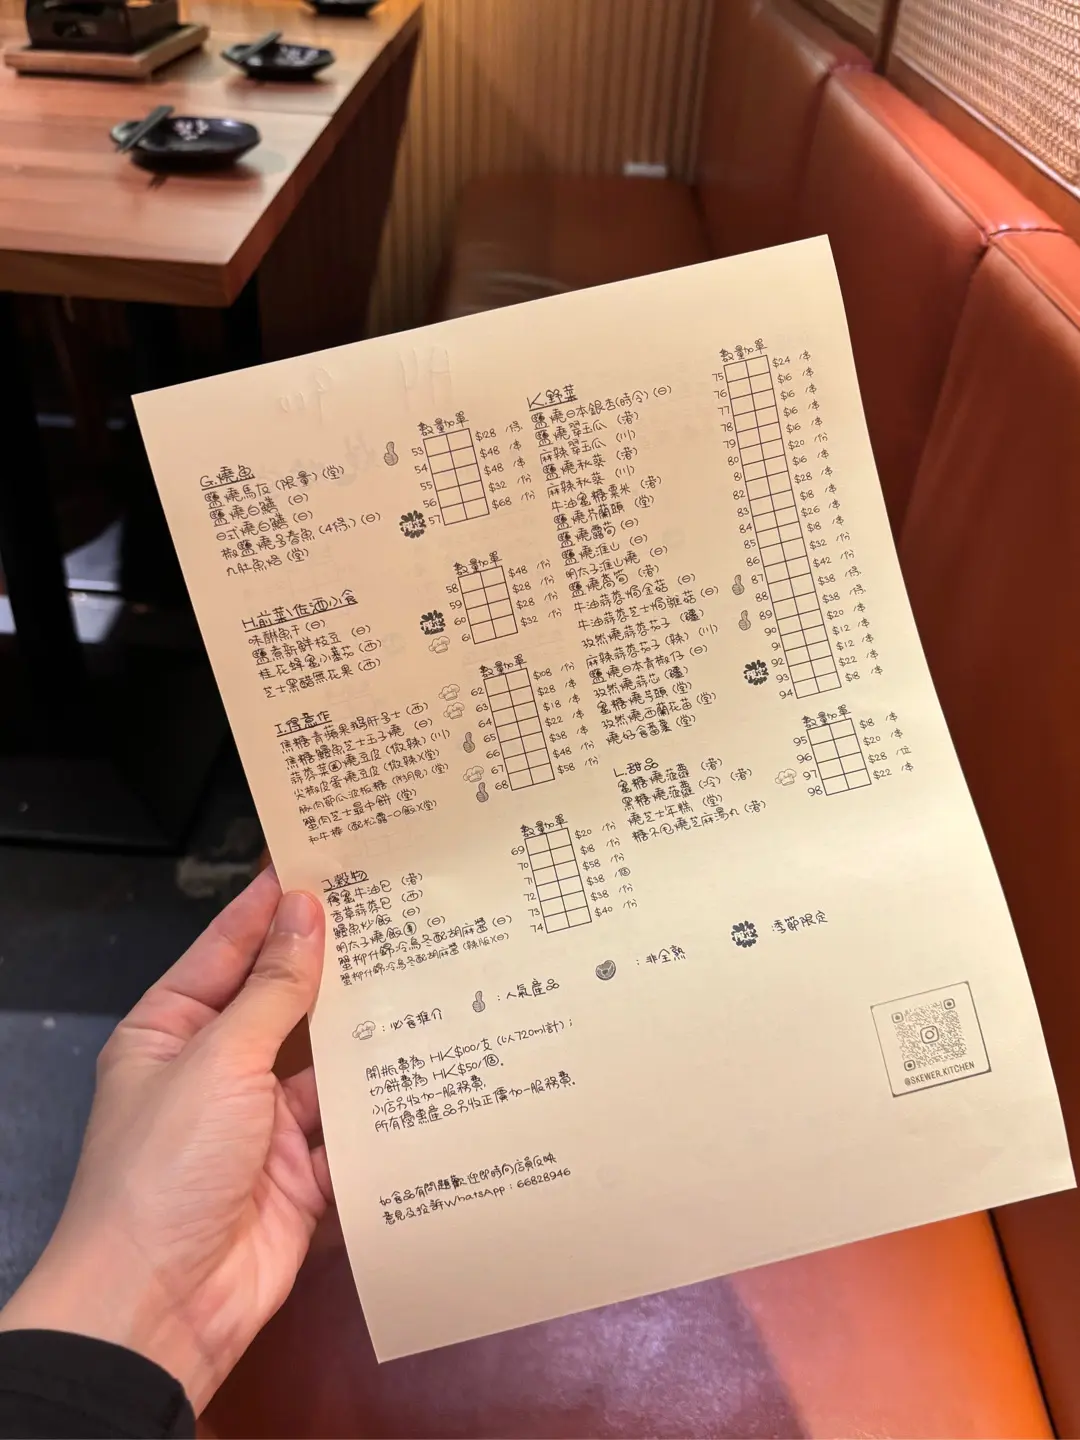 G.燒魚
數量加單
鹽燒馬友(限量)(堂) 53 $28 /條
鹽燒白鱔 (日) 54 $48 /本
日式燒白鱔 (日) 55 $48 /本
椒鹽燒多春魚(4條)(日) 56 $32 /份
九肚魚焙(堂) 57 $68 /份
H.前菜\佐酒小食
數量加單
味醂魚干(日) 58 $48 /份
鹽煮新鮮枝豆 (日) 59 $28 /份
桂花蜂蜜小蕃茄 (西) 60 $28 /份
芝士黑醋無花果 (西) 61 $32 /份
I.得意作
數量加單
焦糖青蘋果鵝肝多士 (西) 62 $108 /份
焦糖鰻魚芝士玉子燒 (日) 63 $28 /本
蒜蓉菜圃燒豆皮(微辣)(川) 64 $18 /本
尖椒皮蛋燒豆皮(微辣)(堂) 65 $22 /本
豚肉節瓜波板糖 (堂) 66 $38 /本
蟹肉芝士最中餅 (堂) 67 $48 /份
和牛棒 (配松露一口飯)(堂) 68 $58 /份
J.穀物
數量加單
蜂蜜牛油包 (港) 69 $20 /份
香草蒜蓉包 (西) 70 $18 /份
鰻魚炒飯 (日) 71 $58 /份
明太子燒飯 (日) 72 $38 /個
蟹柳什錦冷烏冬配胡麻醬 (日) 73 $38 /份
蟹柳什錦冷烏冬配胡麻醬 (辣版)(日) 74 $40 /份
K.野菜
數量加單
鹽燒日本銀杏(時令)(日) 75 $24 /本
鹽燒翠玉瓜 (港) 76 $16 /本
麻辣翠玉瓜 (川) 77 $16 /本
鹽燒秋葵 (港) 78 $16 /本
麻辣秋葵 (川) 79 $16 /本
牛油蜜糖粟米 (港) 80 $20 /份
鹽燒芥蘭頭 (堂) 81 $16 /本
鹽燒露筍(日) 82 $28 /本
鹽燒淮山 (日) 83 $18 /本
明太子淮山燒 (日) 84 $26 /本
鹽燒萵筍 (港) 85 $18 /本
牛油蒜蓉焗金菇 (日) 86 $32 /份
牛油蒜蓉芝士焗雜菇 (日) 87 $42 /份
孜然燒蒜蓉茄子 (疆) 88 $38 /條
麻辣蒜蓉茄子(辣)(川) 89 $38 /條
鹽燒日本青椒仔 (日) 90 $20 /本
孜然燒蒜芯 (疆) 91 $12 /本
蜜糖燒芋頭 (堂) 92 $12 /本
孜然燒西蘭花苗 (堂) 93 $22 /本
燒好食番薯 (堂) 94 $18 /本
L.甜品
數量加單
蜜糖燒菠蘿 (港) 95 $18 /本
黑糖燒菠蘿(冷)(港) 96 $20 /本
燒芝士年糕 (堂) 97 $28 /位
糖不甩燒芝麻湯丸(港) 98 $22 /本
：必食推介
：人氣產品
：非全熟
：季節限定
開瓶費為 HK$100/支 (以720ml計)；
切餅費為 HK$50/個。
小店另收加一服務費，
所有優惠產品另收正價加一服務費。
@SKEWER.KITCHEN
如食品有問題歡迎即時向店員反映
意見及投訴WhatsApp：66828946